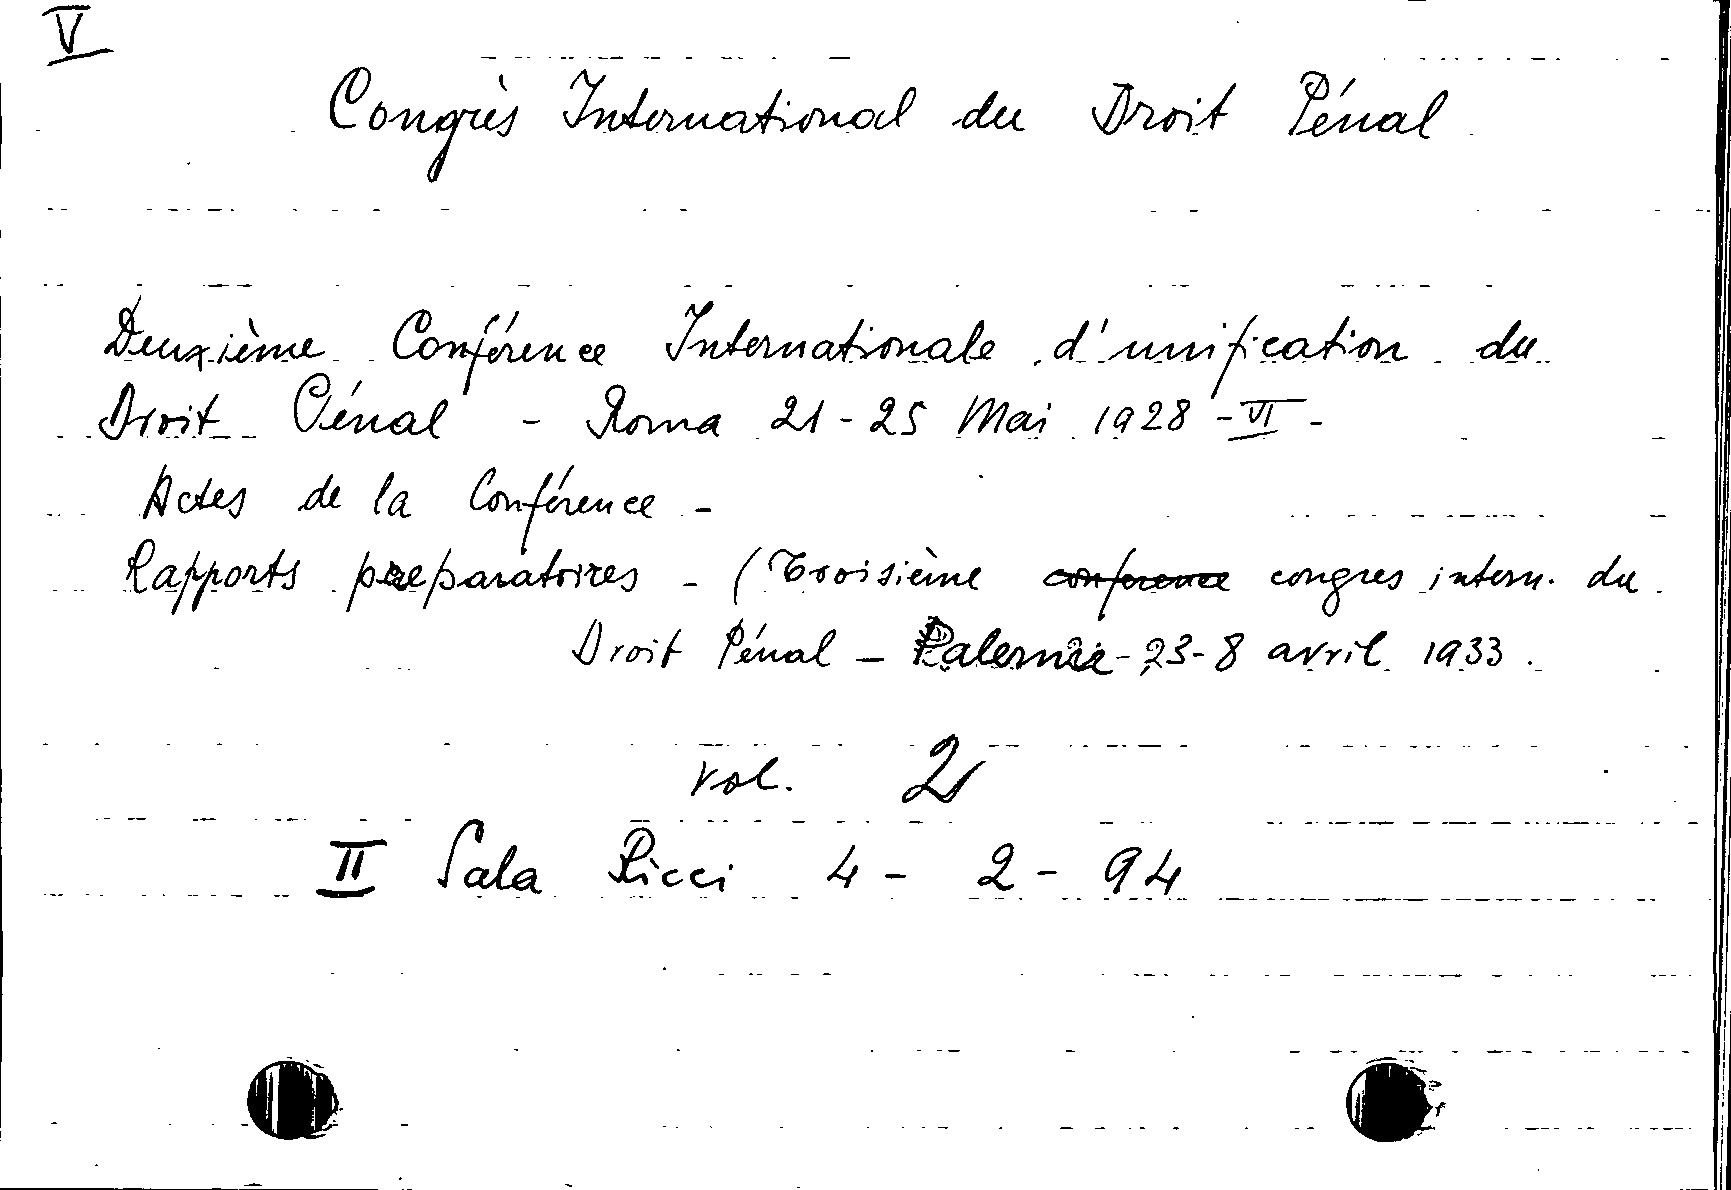 V
Congrès International du Droit Pénal
Deuxième Conférence Internationale d'unification du
Droit Pénal - Roma 21-25 Mai 1928 - VI -
Actes de la Conférence -
Rapports preparatoires - (Troisième conference congres intern. du
Droit Pénal - Palerme - 23-8 avril 1933.
vol. 2
II Sala Ricci 4 - 2 - 94